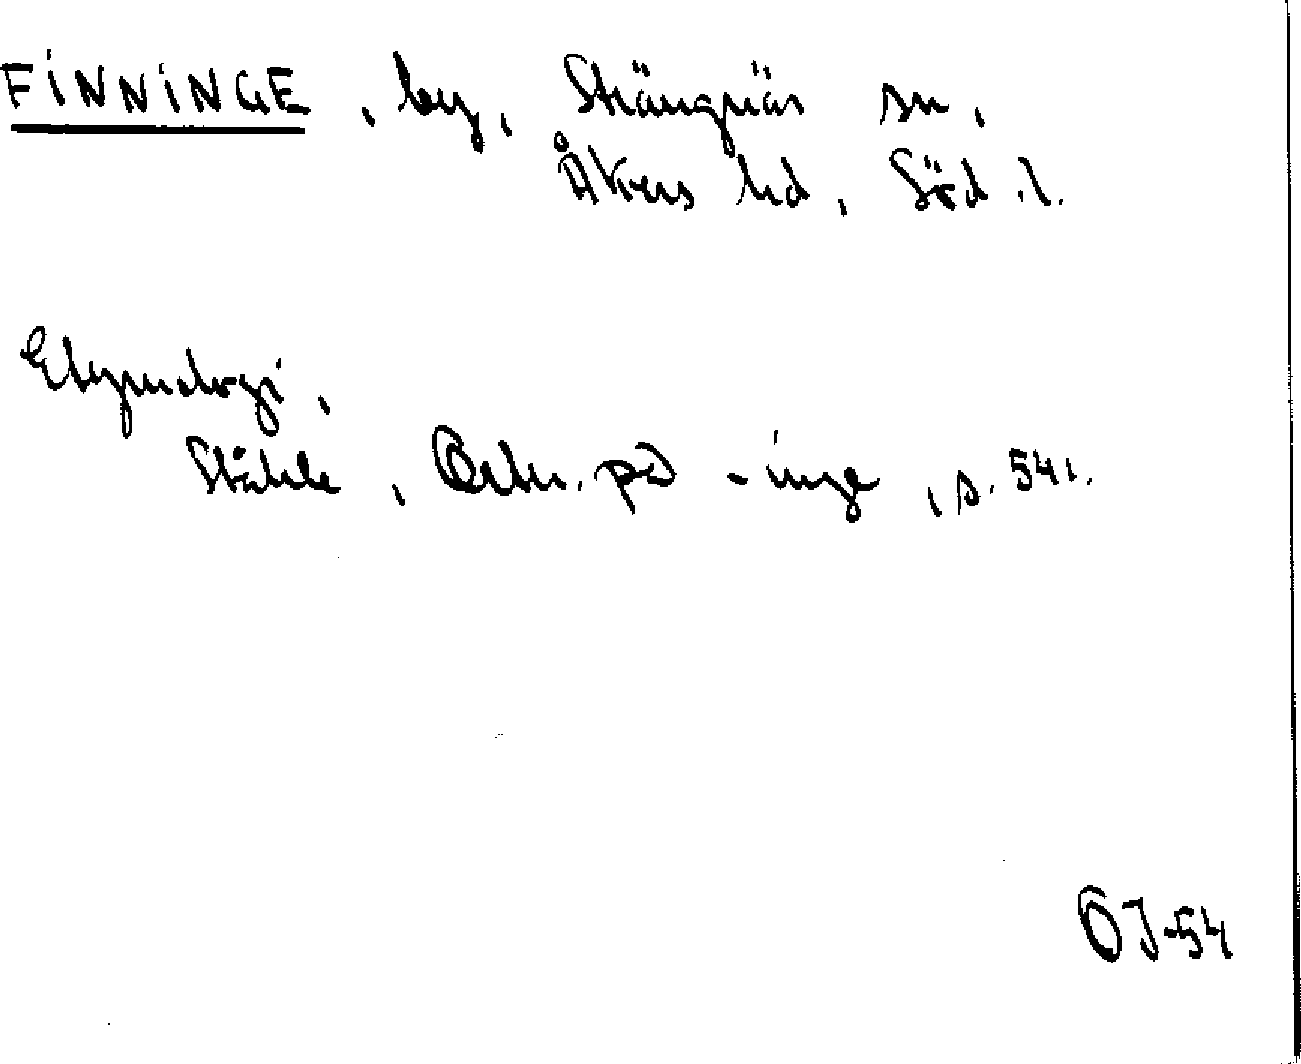 FINNINGE, by, Strängnäs sn,
Åkers hd, Söd. l.
Etymologi,
Ståhle, Ortn. på -inge, s. 541.
OJ-54